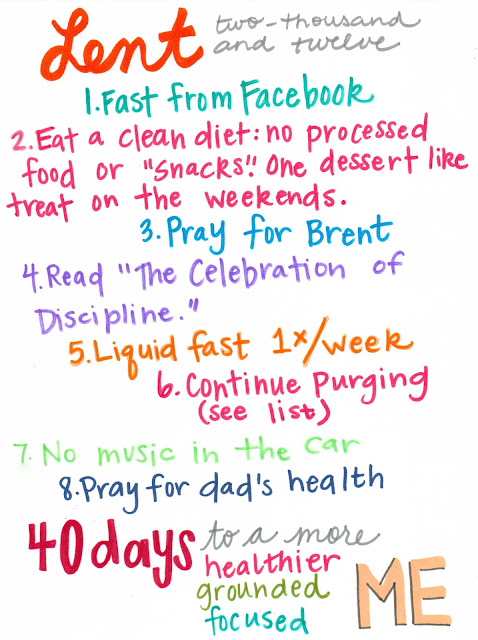 Lent two-thousand
and twelve
1. Fast from Facebook
2. Eat a clean diet: no processed
food or "snacks". One dessert like
treat on the weekends.
3. Pray for Brent
4. Read "The Celebration of
Discipline."
5. Liquid fast 1x/week
6. Continue Purging
(see list)
7. No music in the car
8. Pray for dad's health
40 days to a more
healthier
grounded
focused
ME